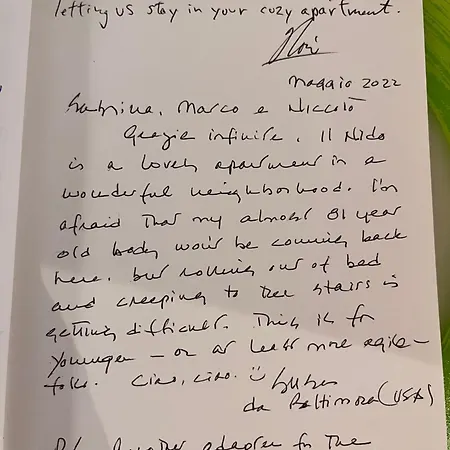 letting us stay in your cozy apartment.
Maggio 2022
Sabrina, Marco e Niccolò
Grazie infinite. Il Nido
is a lovely apartment in a
wonderful neighborhood. I'm
afraid that my almost 81 year
old body won't be coming back
here, but rolling out of bed
and creeping to the stairs is
getting difficult. This is for
younger – or at least more agile –
folks. Ciao, ciao. ☺
da Baltimora (USA)
for the